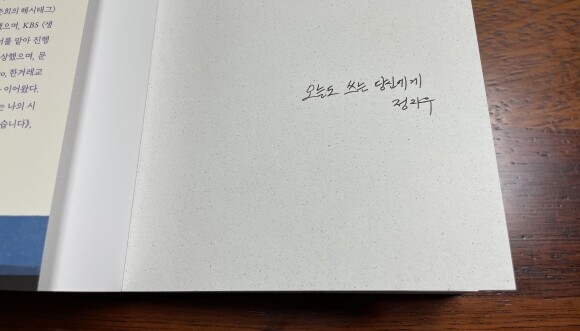 주희의 해시태그)
으며, KBS 〈생
를 맡아 진행
상했으며, 문
o, 한겨레교
이어왔다.
는 나의 시
습니다》,
오늘도 쓰는 당신에게
정지우